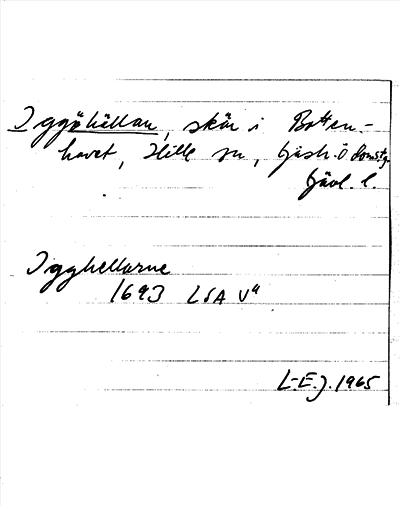 Iggöhällan, skär i Botten-
havet, Hille sn, Gästr. ö domsg.
Gävl. l.
Igghellarne
1693 LSA V⁴
L-E.J. 1965